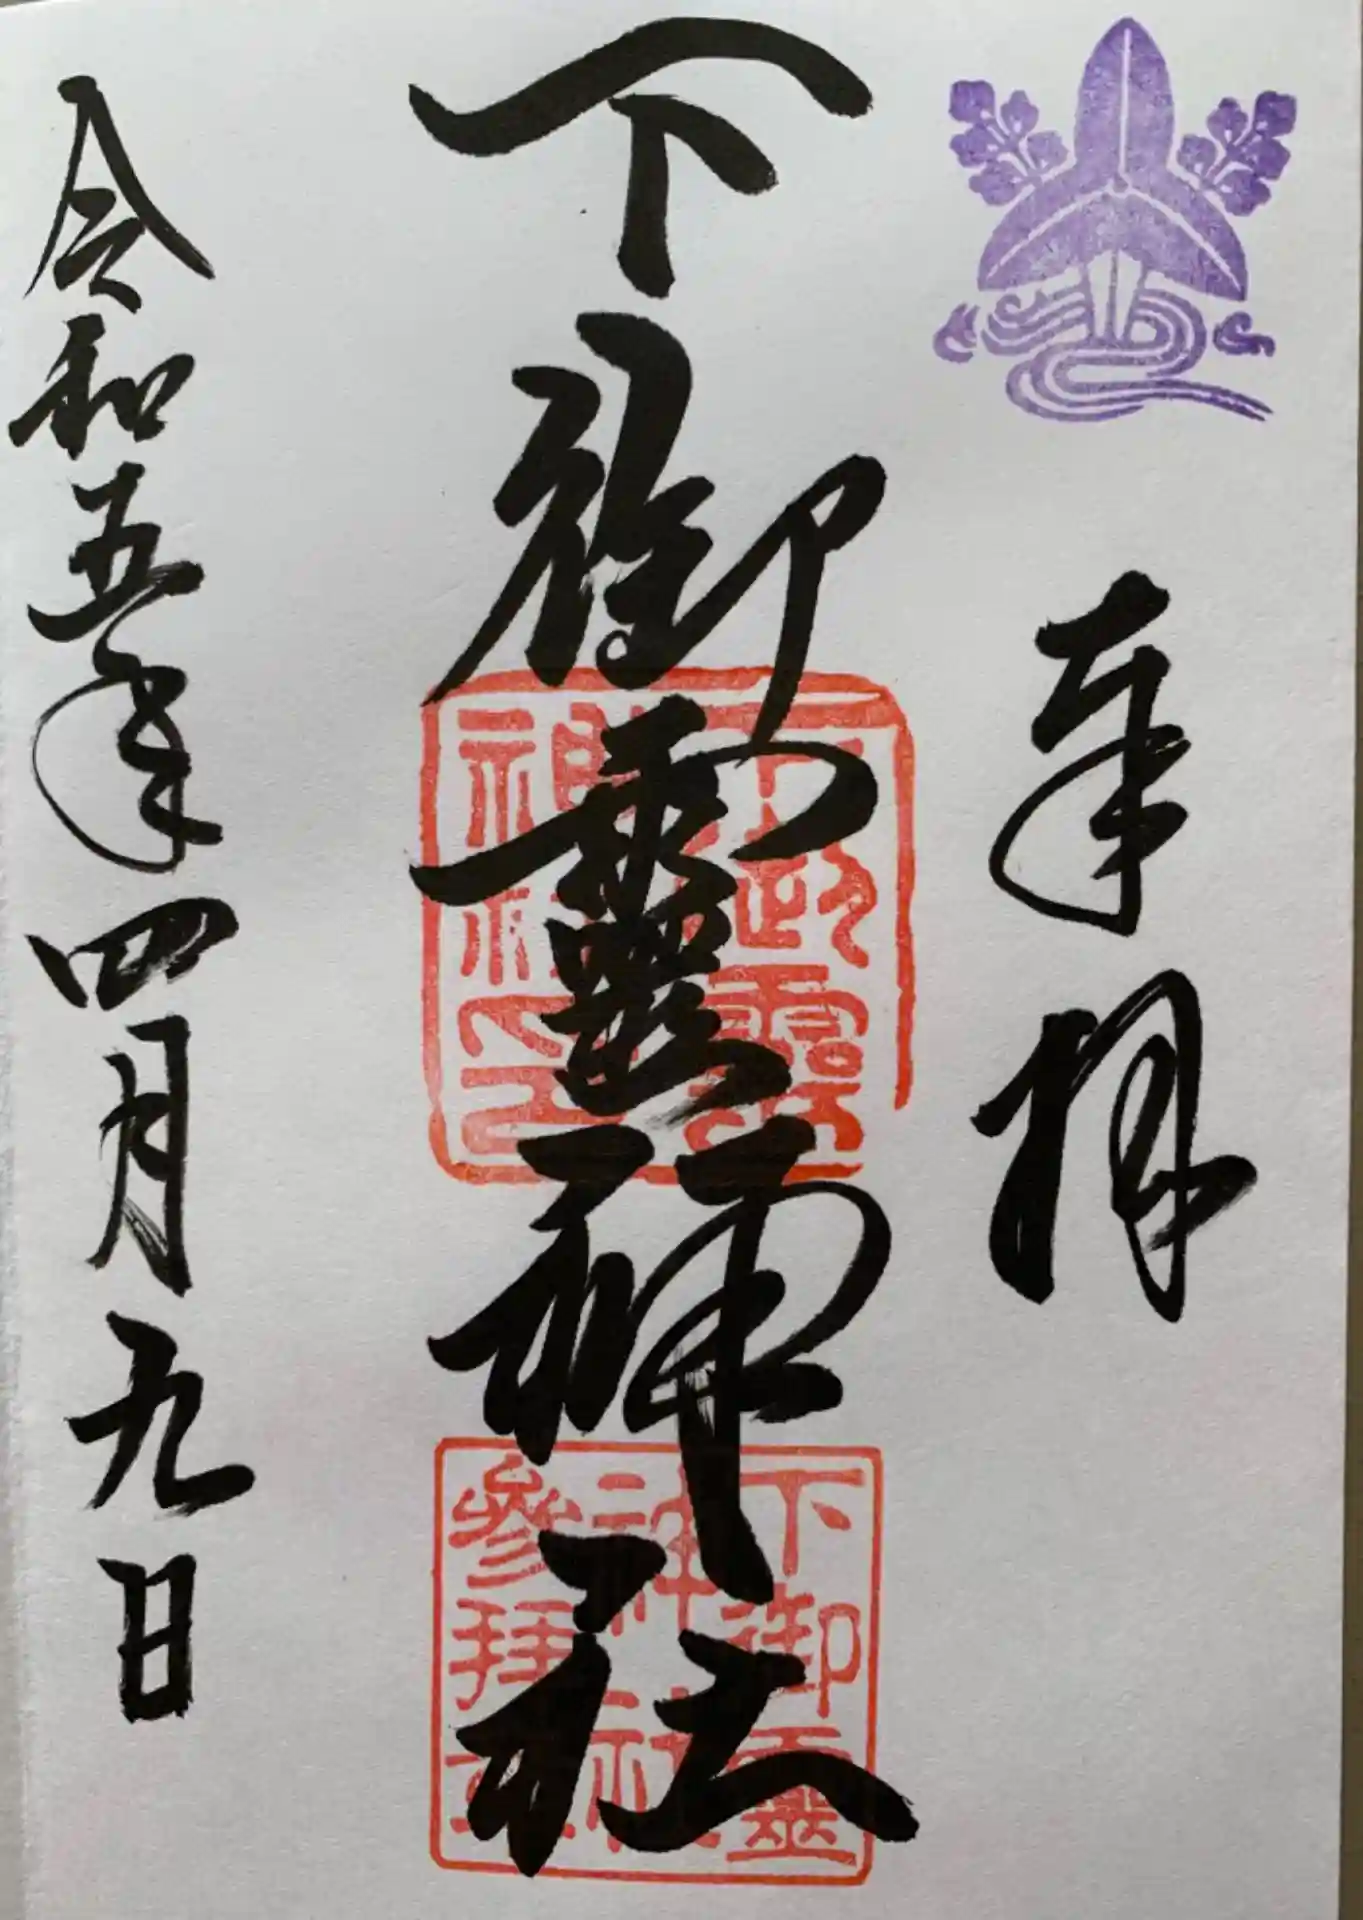 奉拝
下御靈神社
下御靈
神社印
下御靈
神社
参拝章
令和五年四月九日